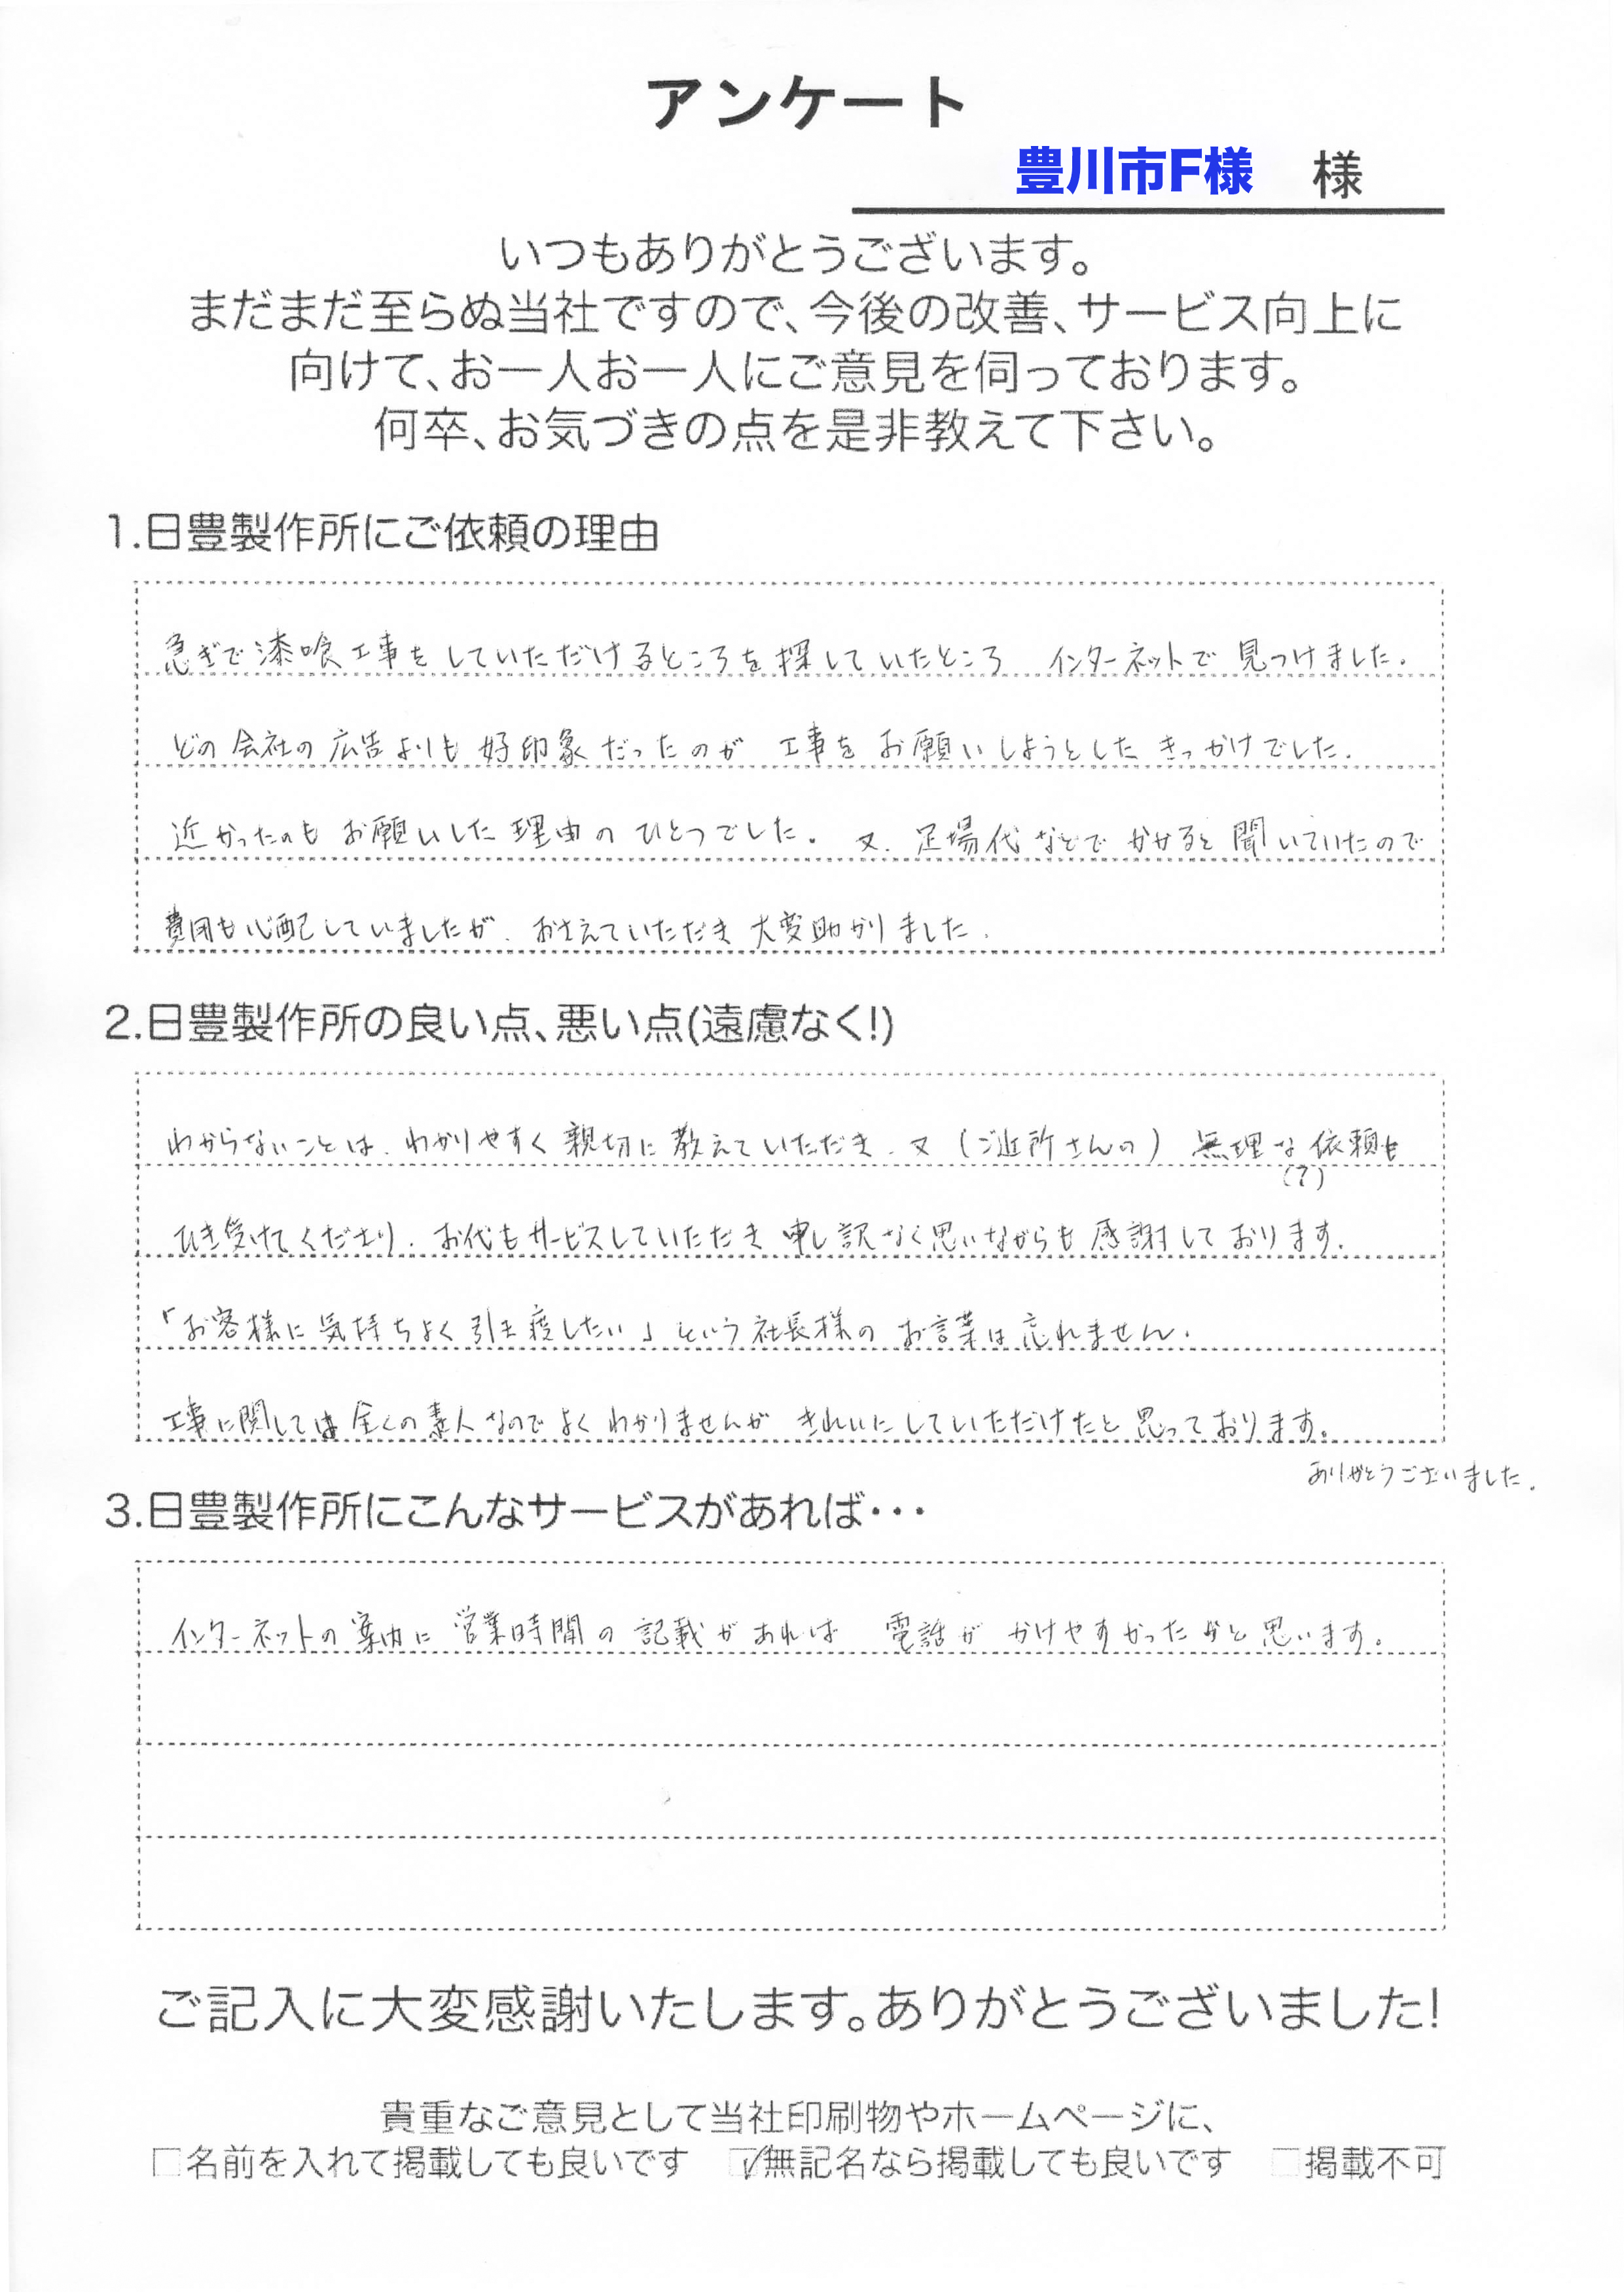 アンケート
豊川市F様 様
いつもありがとうございます。
まだまだ至らぬ当社ですので、今後の改善、サービス向上に
向けて、お一人お一人にご意見を伺っております。
何卒、お気づきの点を是非教えて下さい。
1.日豊製作所にご依頼の理由
急ぎで漆喰工事をしていただけるところを探していたところ インターネットで見つけました。
どの会社の広告よりも好印象だったのが 工事をお願いしようとしたきっかけでした。
近かったのもお願いした理由のひとつでした。又、足場代などでかかると聞いていたので
費用も心配していましたが、おさえていただき大変助かりました。
2.日豊製作所の良い点、悪い点(遠慮なく!)
わからないことは、わかりやすく親切に教えていただき、又(ご近所さんの)無理な依頼も
(?)
ひき受けてくださり、お代もサービスしていただき申し訳なく思いながらも感謝しております。
「お客様に気持ちよく引き渡したい」という社長様のお言葉は忘れません。
工事に関しては全くの素人なのでよくわかりませんが きれいにしていただけたと思っております。
ありがとうございました。
3.日豊製作所にこんなサービスがあれば・・・
インターネットの案内に営業時間の記載があれば 電話がかけやすかったかと思います。
ご記入に大変感謝いたします。ありがとうございました!
貴重なご意見として当社印刷物やホームページに、
□名前を入れて掲載しても良いです ☑無記名なら掲載しても良いです □掲載不可